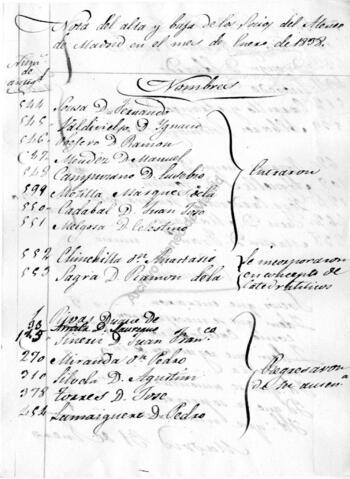 Nota del alta y baja de los Socios del Ateneo
de Madrid en el mes de Enero de 1838.
Num.
de
Nombres
544 Sousa D. Fernando
545 Valdivielso D. Ignacio
546 D. Ramon
547 Mendez D. Manuel
548 Campuzano D. Eusebio
549 Motilla Marqués de la
550 Cadabal D. Juan José
551 D. Celestino
Entraron
552 Chinchilla D. Anastasio
553 Sagra D. Ramon de la
Se incorporaron
en concepto de
Catedráticos
1 Rivas Duque de
Arrieta D.
Sineriz D. Juan Franco
270 Miranda D. Pedro
310 Silvela D. Agustin
378 Torres D. José
454 Lamaiguere D. Pedro
Regresaron
de su ausen